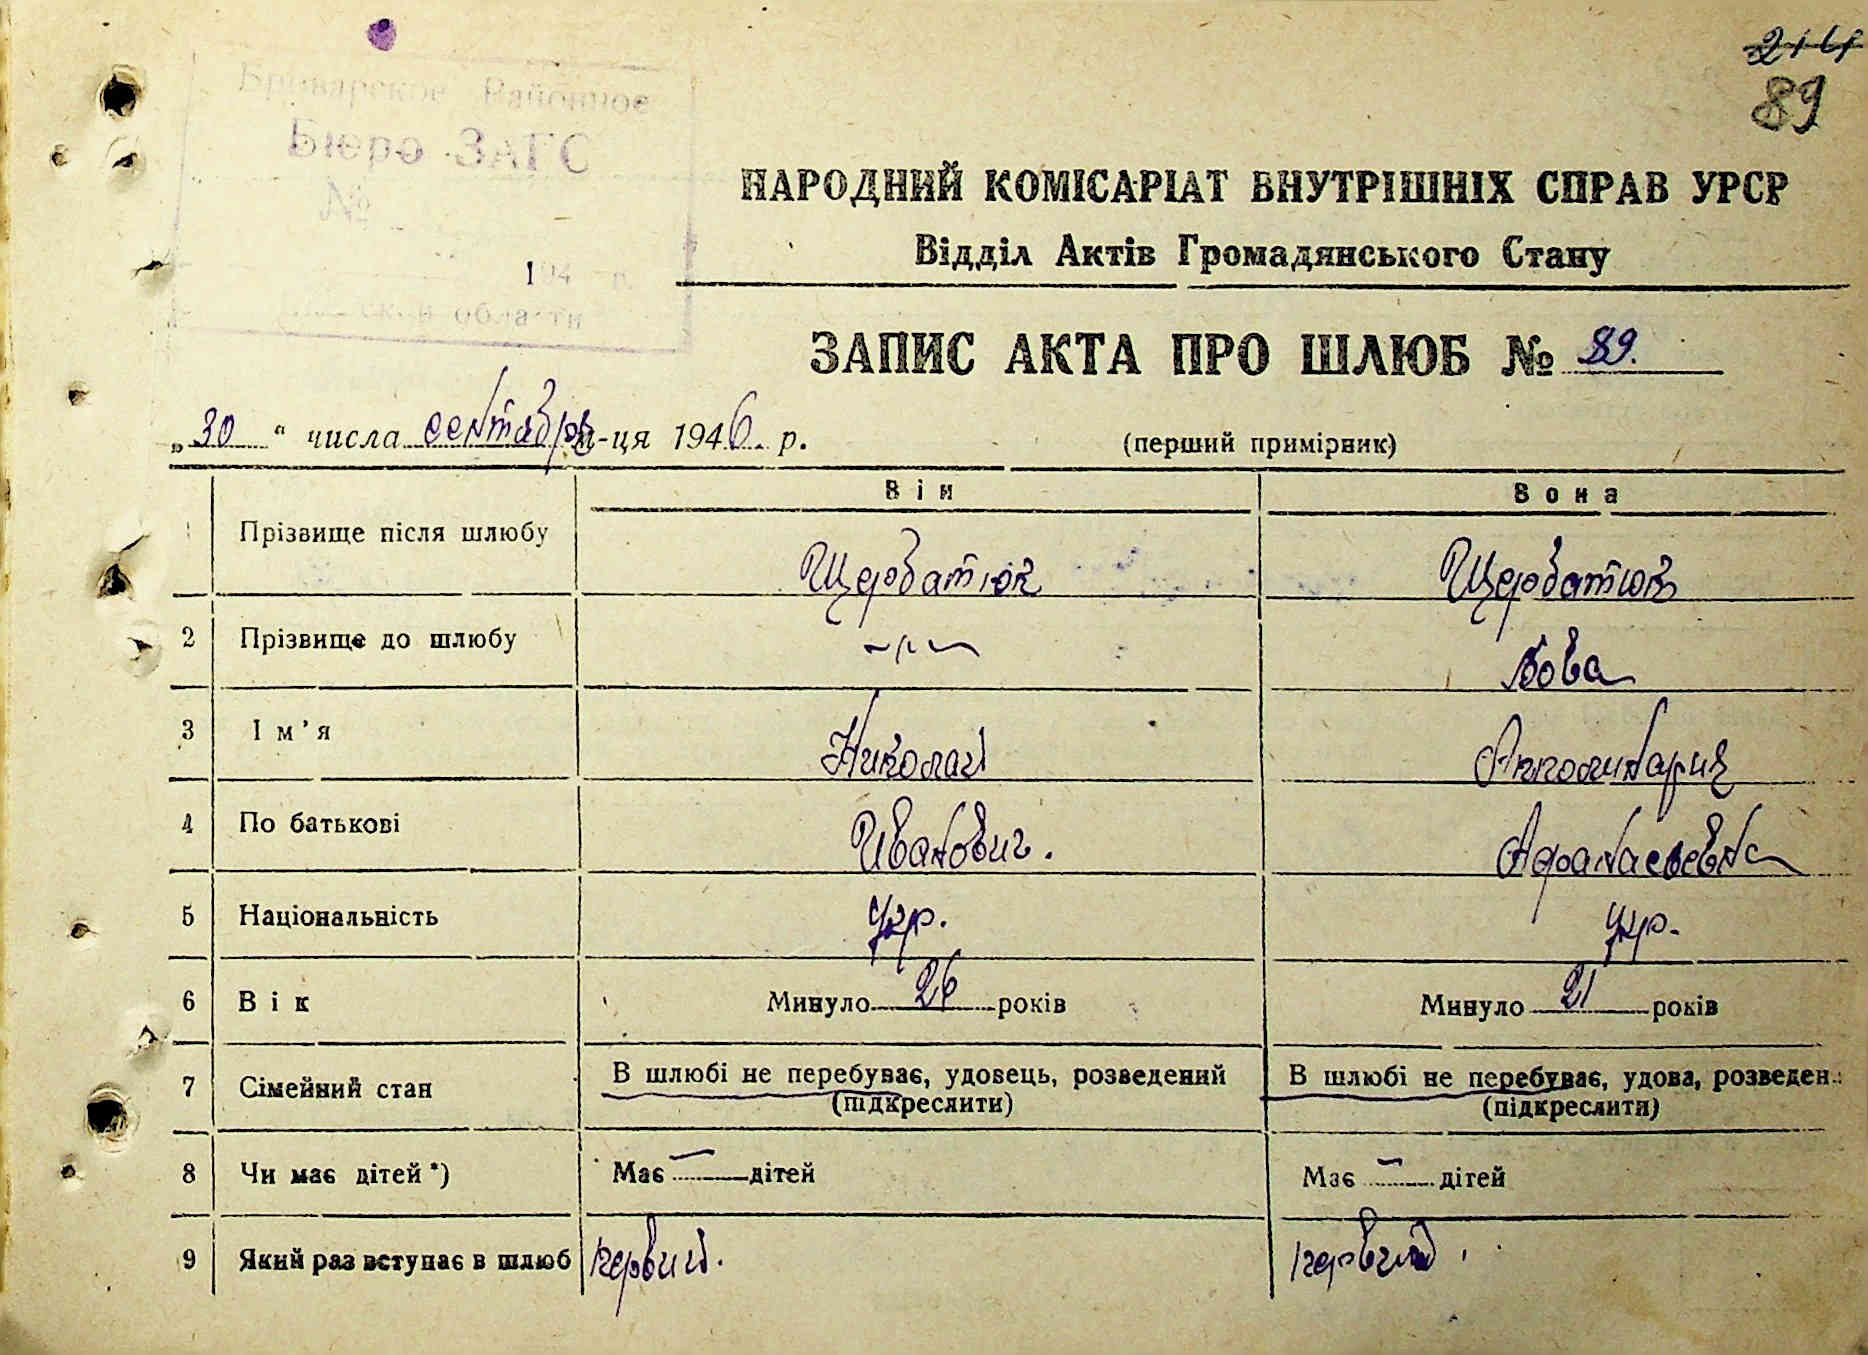 89
Броварское Районное
Бюро ЗАГС
№
194 г.
области
НАРОДНИЙ КОМІСАРІАТ ВНУТРІШНІХ СПРАВ УРСР
Відділ Актів Громадянського Стану
ЗАПИС АКТА ПРО ШЛЮБ № 89.
„30“ числа сентября м-ця 1946. р. (перший примірник)
Він Вона
1 Прізвище після шлюбу Щербатюк Щербатюк
2 Прізвище до шлюбу -"- Бова
3 Ім'я Николай Апполинария
4 По батькові Иванович. Афанасьевна
5 Національність Укр. Укр.
6 Вік Минуло 26 років Минуло 21 років
7 Сімейний стан В шлюбі не перебуває, удовець, розведений В шлюбі не перебуває, удова, розведен.
(підкреслити) (підкреслити)
8 Чи має дітей *) Має — дітей Має — дітей
9 Який раз вступає в шлюб первый. первый.